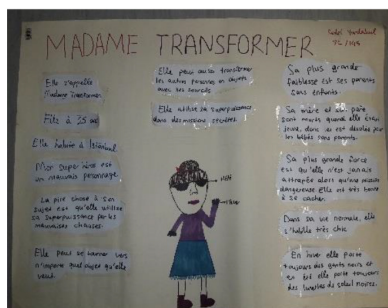 MADAME TRANSFORMER
Elle s'appelle
Madame Transformer.
Elle à 35 ans
Elle habite à
Mon super héros est
un mauvais personnage.
La pire chose à son
sujet est qu'elle utilise
sa superpuissance par les
mauvaises choses.
Elle peux se
n'importe quel objet qu'elle
veut.
Elle peut aussi transformer
les autres personnes en objets
avec les
Elle utilise sa superpuissance
dans des missions secrètes.
Sa plus grande
faiblesse est ses parents
sans enfants.
Sa mère et son père
sont morts quand elle était
jeune, donc elle est desolée par
les bébés sans parents.
Sa plus grande force
est qu'elle n'est jamais
attrapée alors qu'une
dangereuse. Elle est très bonne
à se cacher.
Dans sa vie normale, elle
s'habille très chic.
En hiver elle porte
toujours des gants noirs et
en été elle porte toujours
des lunettes de soleil noires.